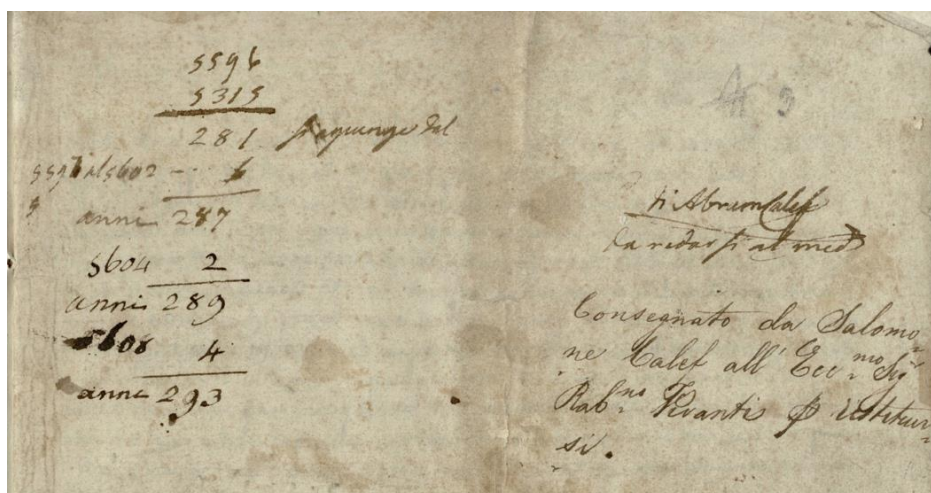 5596
5315
281 si aggiunge dal
5597 al 5602 -- 6
anni 287
5604 2
anni 289
5608 4
anni 293
di Abram Calef
da redarsi al med
Consegnato da Salomo-
ne Calef all' Ecc.mo Sig
Rab.no Pivanti restituir-
si.